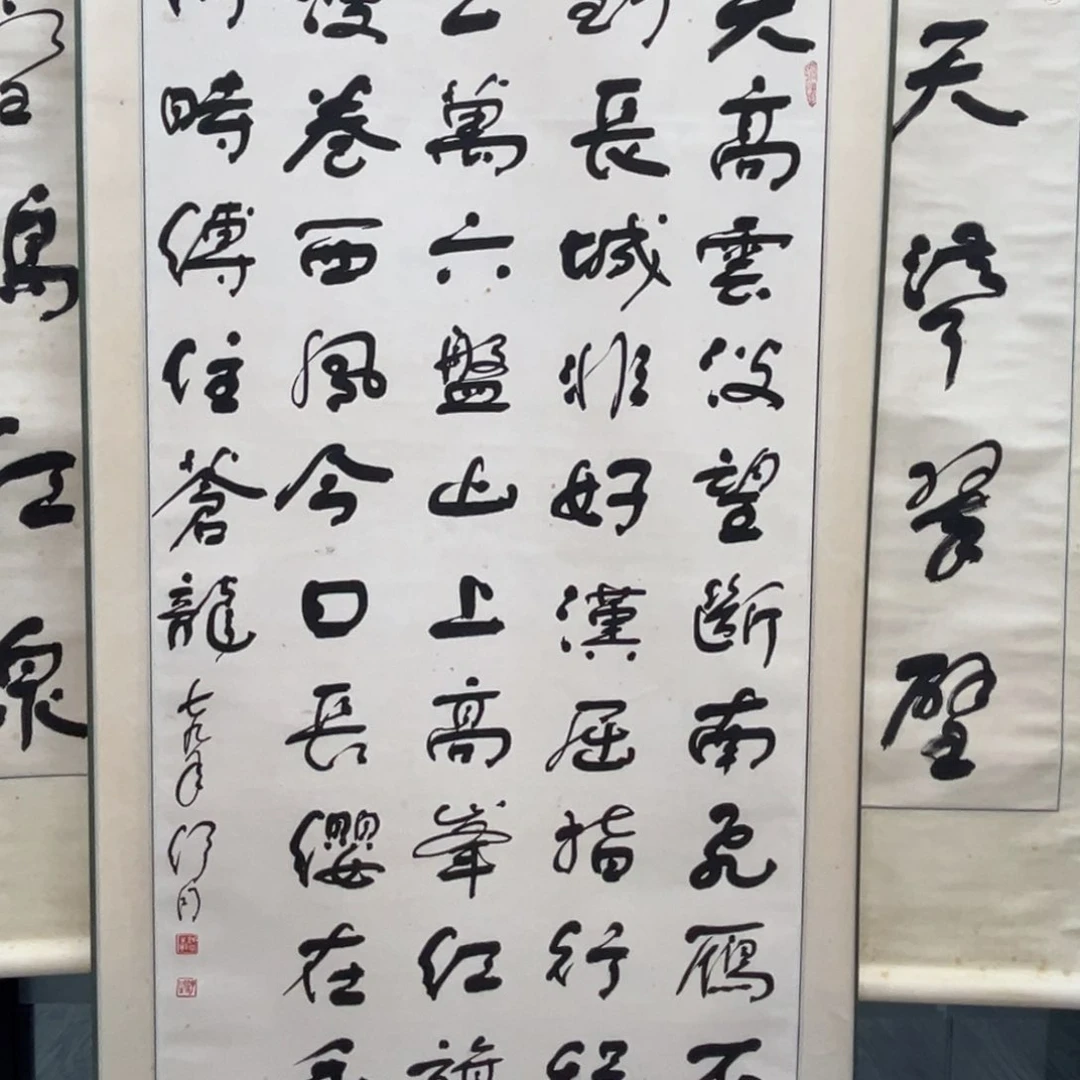 天 翠壁
天高雲淡望斷南飛雁不
到長城非好漢屈指行程
二萬六盤山上高峯紅旗
漫卷西風今日長纓在手
何時縛住蒼龍
七九年 舒同
泉